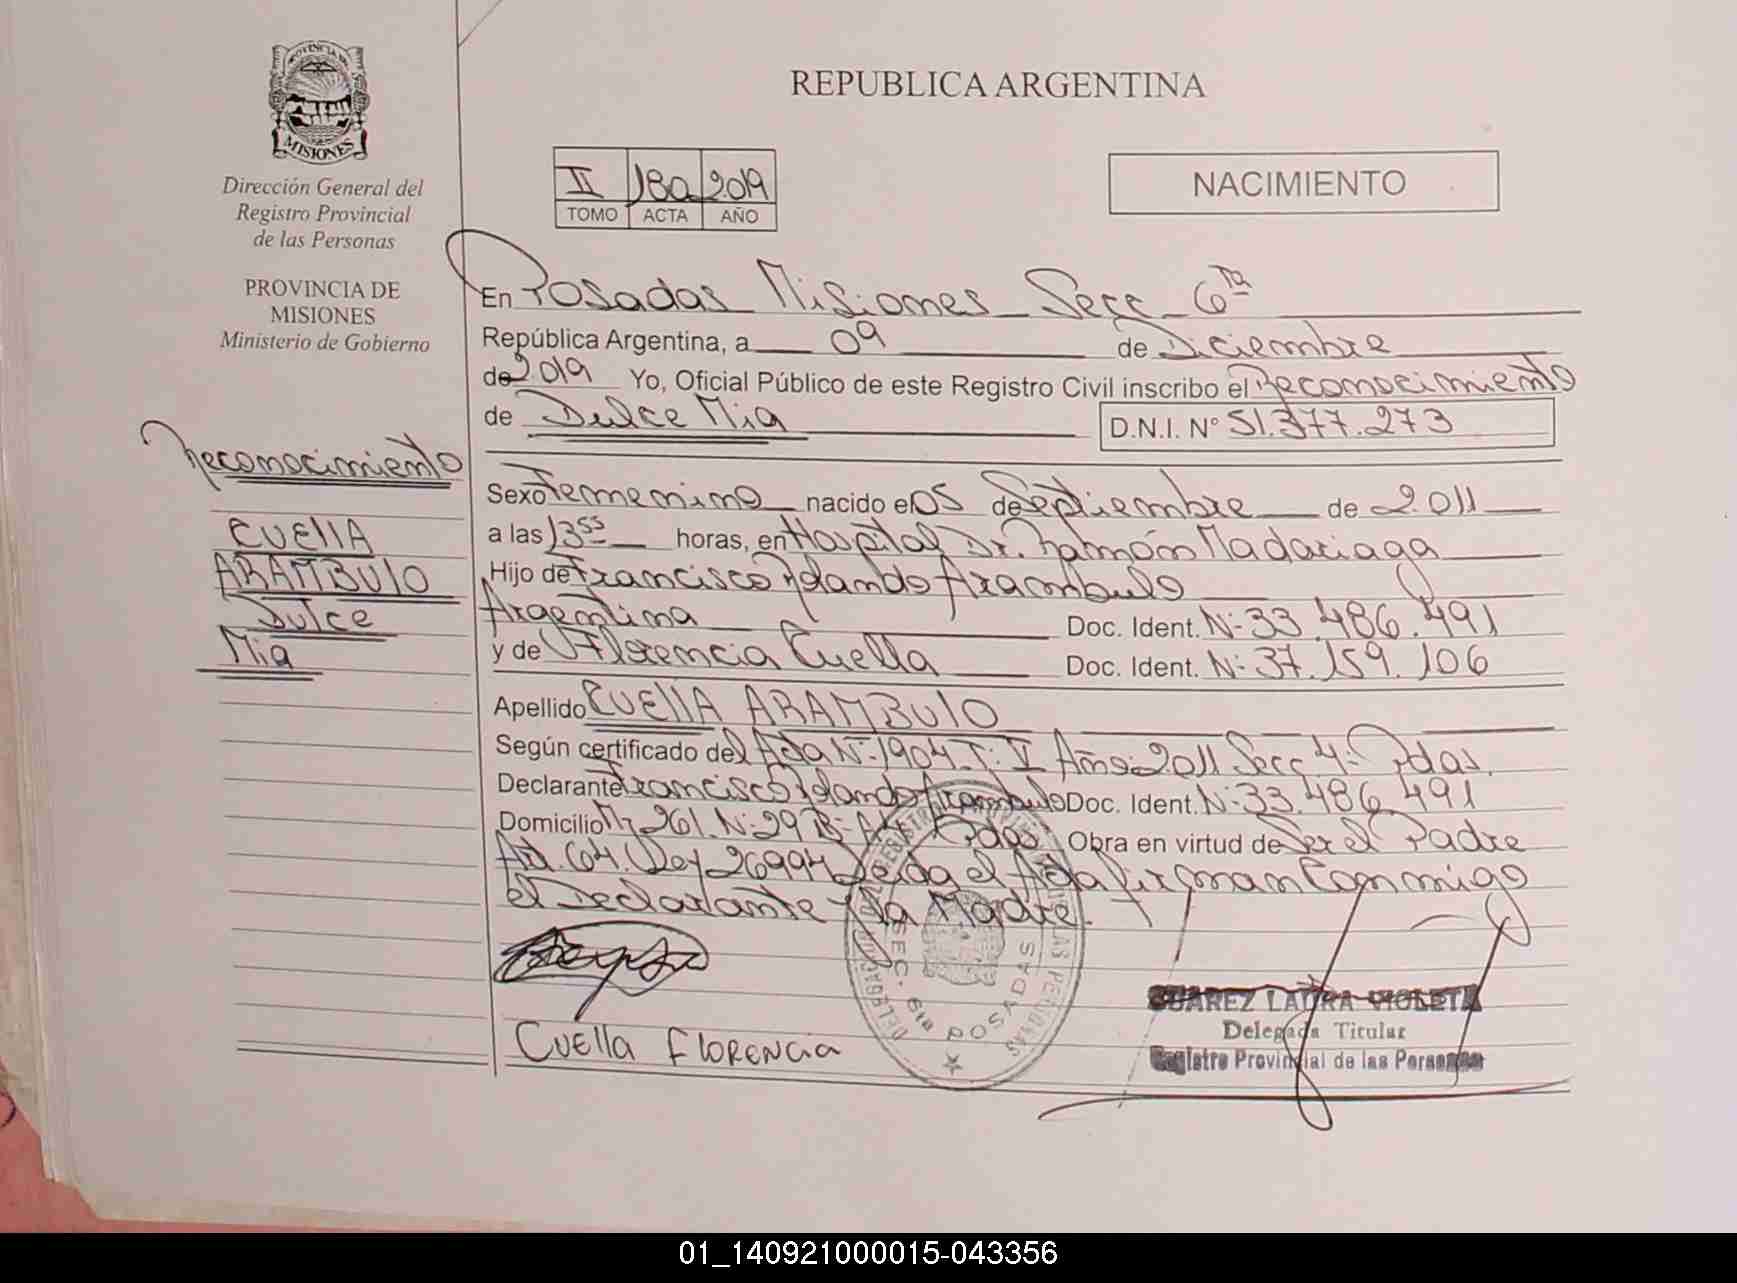 PROVINCIA DE
MISIONES
Dirección General del
Registro Provincial
de las Personas
PROVINCIA DE
MISIONES
Ministerio de Gobierno
Reconocimiento
CUEllA
ARAMBUlO
Dulce
Mia
REPUBLICA ARGENTINA
II 180 2019
TOMO ACTA AÑO
NACIMIENTO
En Posadas Misiones Secc 6ta
República Argentina, a 09 de Diciembre
de 2019 Yo, Oficial Público de este Registro Civil inscribo el Reconocimiento
de Dulce Mia D.N.I. N° 51.377.273
Sexo Femenino nacido el 05 de Septiembre de 2011
a las 13 55 horas, en Hospital Dr. Ramón Madariaga
Hijo de Francisco Rolando Arambulo
Argentina Doc. Ident. N° 33.486.491
y de Florencia Cuella Doc. Ident. N° 37.159.106
Apellido CUEllA ARAMBUlO
Según certificado del Acta N° 1904 T: V Año: 2011 Secc 4° Pdas.
Declarante Francisco Rolando Arambulo Doc. Ident. N° 33.486.491
Domicilio Mz 261. N° 29 B° Pdas Obra en virtud de Ser el Padre
Art. 64. Ley 26994 Leida el Acta firman Conmigo
el Declarante y la Madre.
Cuella Florencia
SEC. 6ta POSADAS
SUAREZ LAURA VIOLETA
Delegada Titular
Registro Provincial de las Personas
01_140921000015-043356